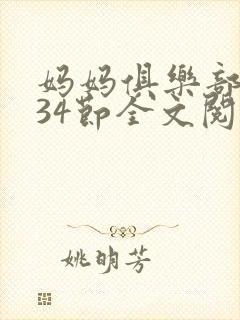 妈妈俱樂部
34節全文閱
姚明芳